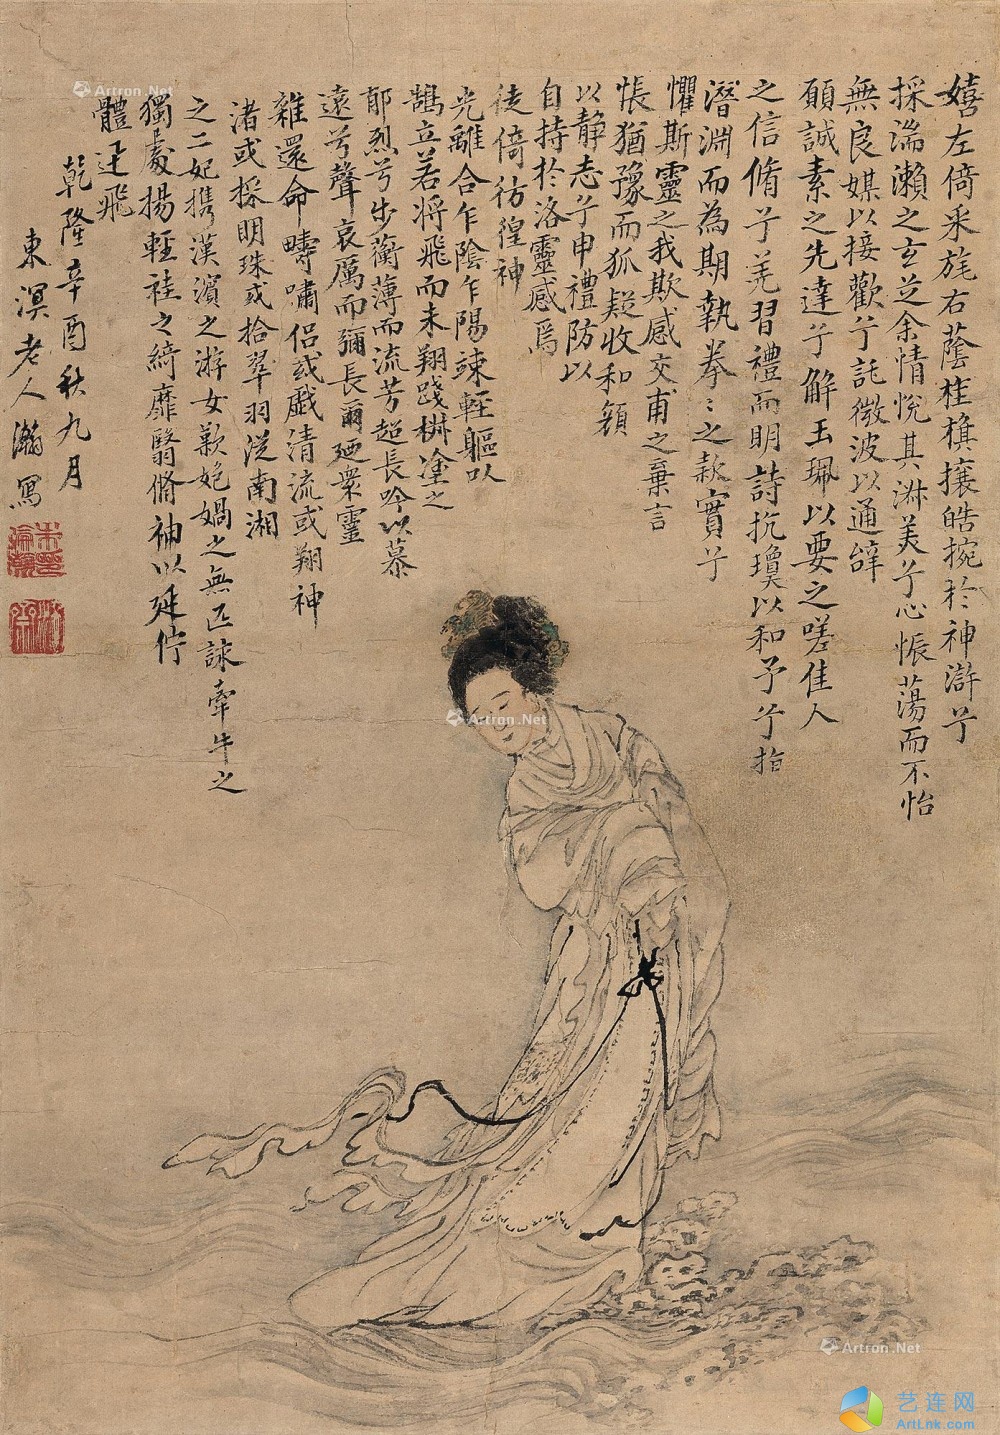 嬉左倚采旄右蔭桂旗攘皓捥於神滸兮
採湍瀨之玄芝余情悅其淑美兮心悵蕩而不怡
無良媒以接歡兮託微波以通辭
願誠素之先達兮解玉珮以要之嗟佳人
之信脩兮羌習禮而明詩抗瓊以和予兮指
潛淵而為期執拳〻之款實兮
懼斯靈之我欺感交甫之棄言
悵猶豫而狐疑收和顏
以靜志兮申禮防以
自持於洛靈感焉
徒倚彷徨神
光離合乍陰乍陽竦輕軀以
鵠立若將飛而未翔踐椒塗之
郁烈兮步蘅薄而流芳超長吟以慕
遠兮聲哀厲而彌長爾迺衆靈
雜還命疇嘯侶或戲清流或翔神
渚或採明珠或拾翠羽從南湘
之二妃携漢濱之游女歎匏媧之無匹詠牽牛之
獨處揚輕袿之綺靡翳脩袖以延佇
體迅飛
乾隆辛酉秋九月
東溟老人瀚寫
Artron.Net
Artron.Net
Artron.Net
艺连网
ArtLnk.com